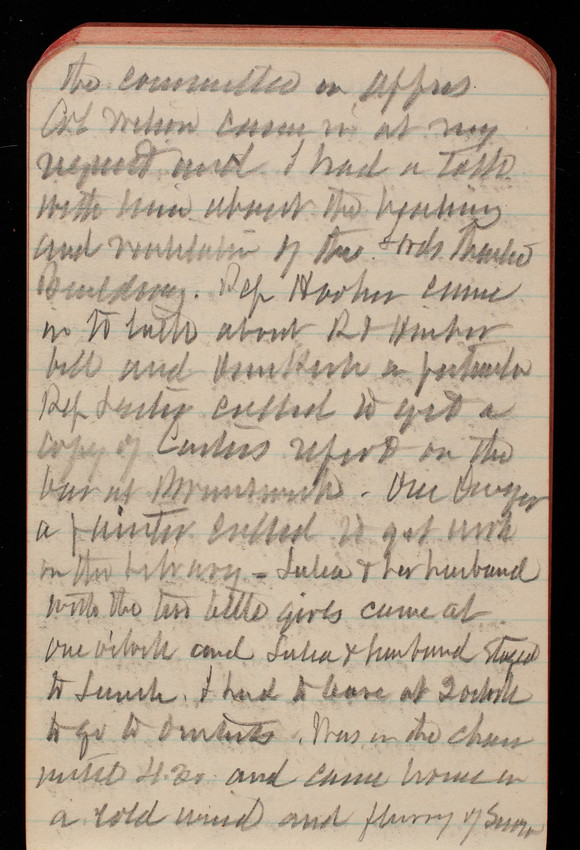 the committee on Appros
Col Wilson came in at my
request and I had a talk
with him about the heating
and ventilation of the Fords Theatre
Building. Rep Hooker came
in to talk about R I Harbor
bill and Dunkirk in particular
Rep Lester called to get a
copy of Carters report on the
bar at Brunswick. One Dwyer
a painter called to get work
on the Library - Lulea & her husband
with the two little girls came at
one o'clock and Lulea & husband stayed
to Lunch. I had to leave at 2 o'clock
to go to Dentists. Was in the chair
until 4.30 and came home in
a cold wind and flurry of Snow